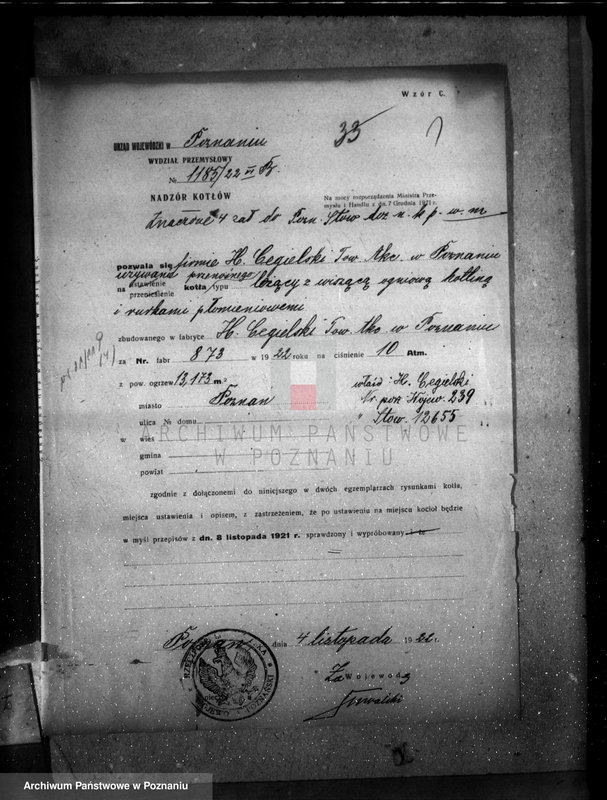 Wzór C.
33
URZĄD WOJEWÓDZKI w Poznaniu
WYDZIAŁ PRZEMYSŁOWY
№ 1185/22 VI
NADZÓR KOTŁÓW
Na mocy rozporządzenia Ministra Prze-
mysłu i Handlu z dn. 7 Grudnia 1921 r.
4 zał do Pozn. Stow doz n. k p. w. m
pozwala się firmie H. Cegielski Tow. Akc. w Poznaniu
używania przenośnego
na ustawienie przeniesienie kotła typu leżący z wiszącą ogniową kotliną
i rurkami płomieniowemi
zbudowanego w fabryce H. Cegielski Tow. Akc w Poznaniu
za Nr. fabr 873 w 1922 roku na ciśnienie 10 Atm.
z pow. ogrzew 13,173 m²
właśc H. Cegielski
miasto Poznań
Nr. pozw Wojew. 239
ulica № domu
" Stow. 12655
w wieś
gmina
powiat
ARCHIWUM PAŃSTWOWE
W POZNANIU
zgodnie z dołączonemi do niniejszego w dwóch egzemplarzach rysunkami kotła,
miejsca ustawienia i opisem, z zastrzeżeniem, że po ustawieniu na miejscu kocioł będzie
w myśl przepisów z dn. 8 listopada 1921 r. sprawdzony i wypróbowany i te
Poznań dnia 4 listopada 1922 r.
Za Wojewodę
Kowalski
Archiwum Państwowe w Poznaniu